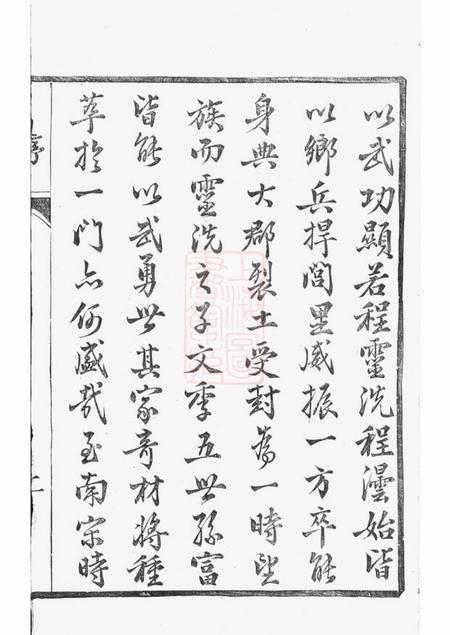 以武功顯若程靈洗程澐始皆
以鄉兵捍閭里威振一方卒能
身典大郡裂土受封為一時望
族而靈洗之子文季五世孫富
皆能以武勇世其家奇材將種
萃於一門亦何盛哉至南宋時
序